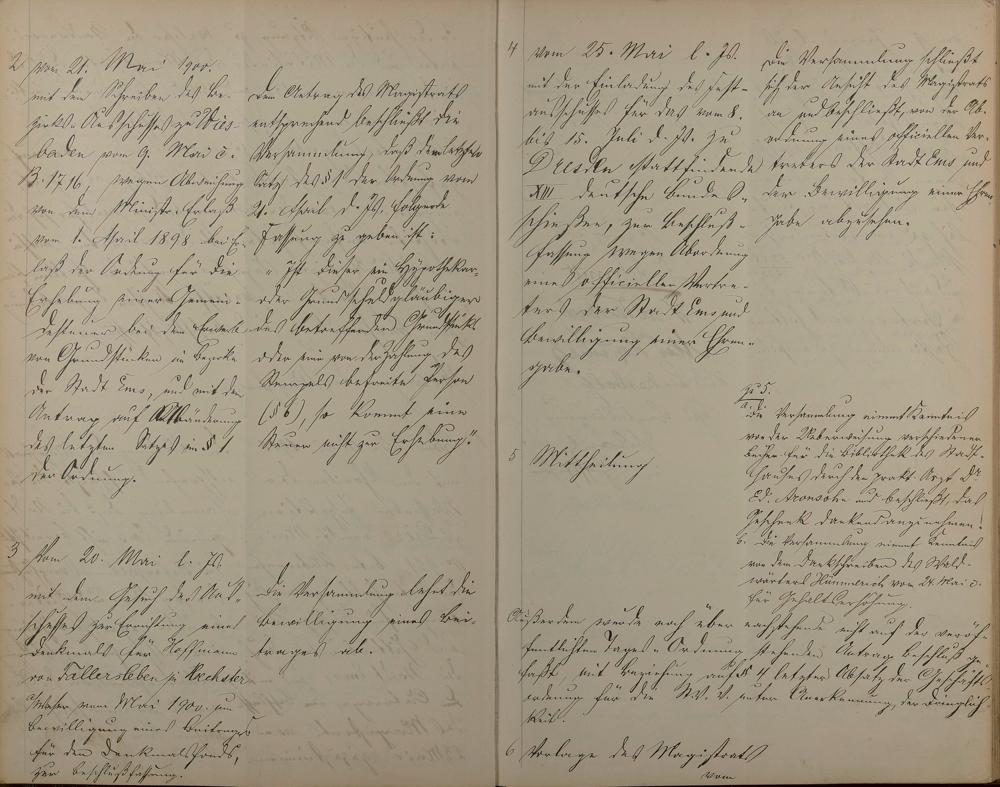 2 vom 21. Mai 1900.
mit dem Schreiben des Be-
zirks-Ausschusses zu Wies-
baden vom 9. Mai c.
B. 1716, wegen Abweichung
von dem Minister-Erlaß
vom 1. April 1898 bei Er-
laß der Ordnung für die
Erhebung einer Gemein-
desteuer bei dem Erwerb
von Grundstücken im Bezirke
der Stadt Ems, und mit dem
Antrag auf Abänderung
des letzten Satzes im § 1
der Ordnung.
Dem Antrag des Magistrats
entsprechend beschließt die
Versammlung, daß dem letzten
Satz des § 1 der Ordnung vom
21. April d. Js. folgende
Fassung zu geben ist:
"Ist dieser ein Hypothekar-
oder Grundschuldgläubiger
des betreffenden Grundstücks
oder eine von der Zahlung des
Stempels befreite Person
(§ 6), so kommt eine
Steuer nicht zur Erhebung."
3 Vom 20. Mai l. Js.
mit dem Gesuch des Aus-
schusses zur Errichtung eines
Denkmals für Hoffmann
von Fallersleben zu Höxter
vom Mai 1900, um
Bewilligung eines Beitrages
für den Denkmalsfonds,
zur Beschlußfassung.
Die Versammlung lehnt die
Bewilligung eines Bei-
trages ab.
4 vom 25. Mai l. Js.
mit der Einladung des Fest-
ausschusses für das vom 8.
bis 15. Juli d. Js. zu
Dresden stattfindende
XIII deutsche Bundes-
schießen, zur Beschluß-
fassung wegen Abordnung
eines officiellen Vertre-
ters der Stadt Ems und
Bewilligung einer Ehren-
gabe.
Die Versammlung schließt
sich der Ansicht des Magistrats
an und beschließt, von der Ab-
ordnung eines officiellen Ver-
treters der Stadt Ems und
der Bewilligung einer Ehren-
gabe abzusehen.
5 Mittheilung
Zu 5.
a. Die Versammlung nimmt Kenntnis
von der Ueberweisung verschiedener
Bücher für die Bibliothek des Stadt-
hauses durch den prakt. Arzt Dr.
Ed. Aronsohn und beschließt, das
Geschenk dankend anzunehmen.
b. Die Versammlung nimmt Kenntnis
von dem Dankschreiben des Wald-
wärters vom 24. Mai c.
für Gehaltserhöhung.
Außerdem wurde noch über nachstehende nicht auf der veröf-
fentlichten Tages-Ordnung stehenden Antrag Beschluß ge-
faßt, mit Beziehung auf § 4 letzter Absatz der Geschäfts-
ordnung für die St. V. V. unter Anerkennung der Dringlich-
keit.
6 Vorlage des Magistrats
vom